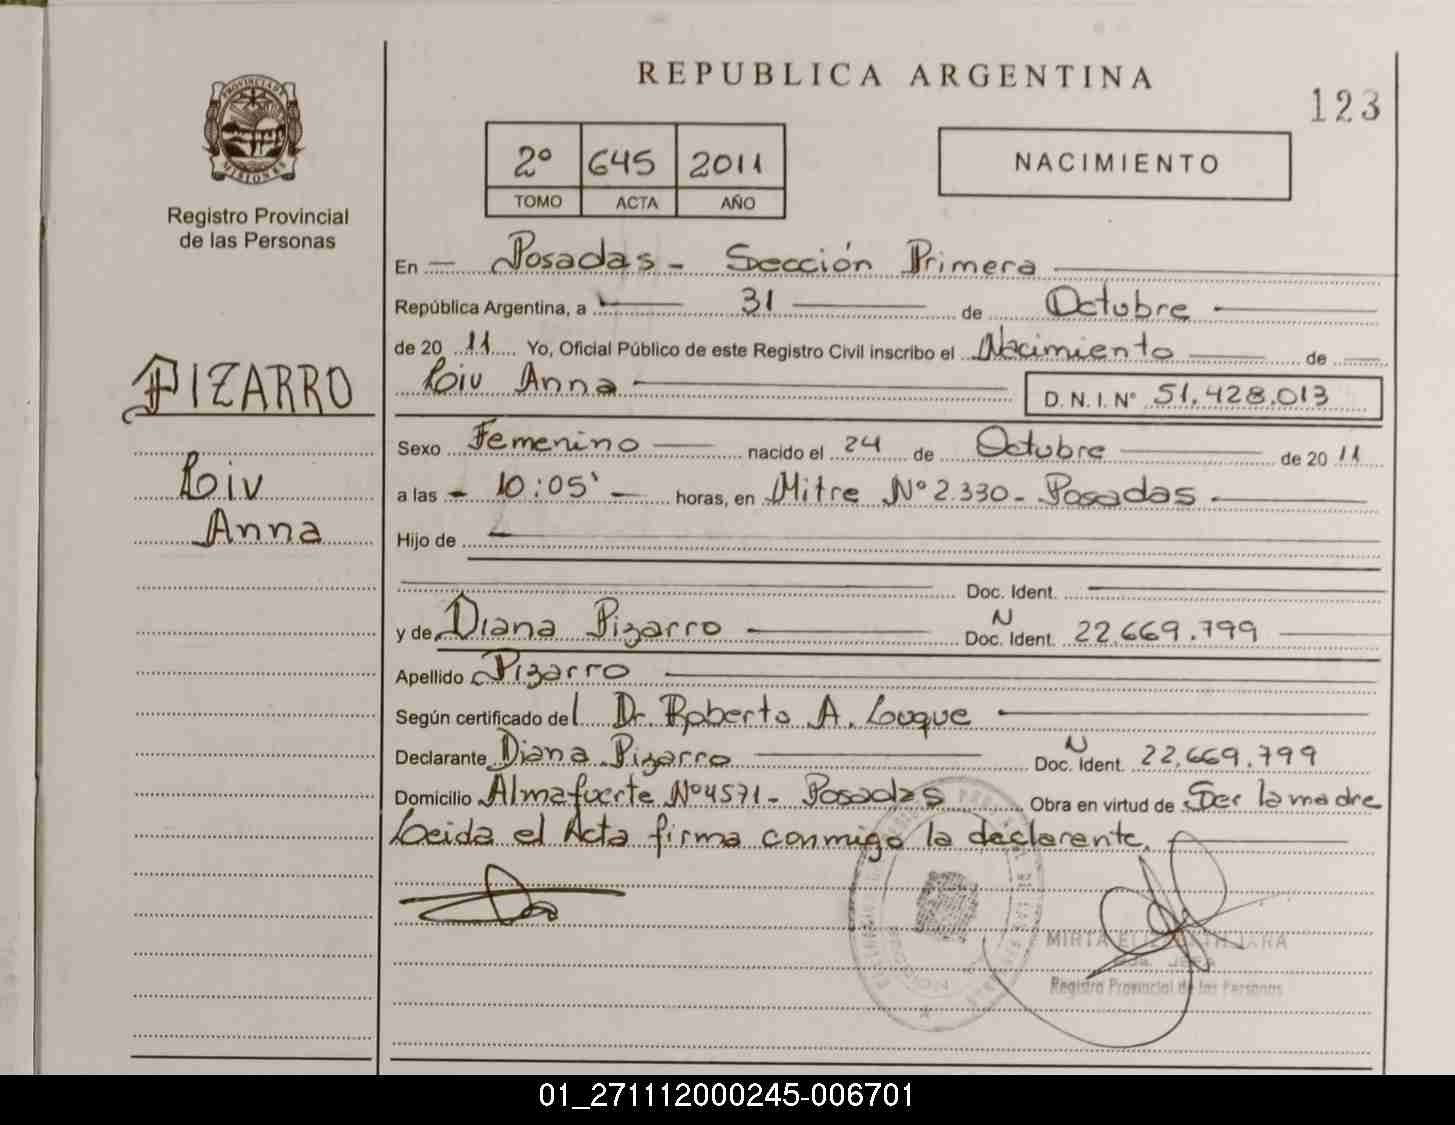 REPUBLICA ARGENTINA
123
PROVINCIA DE MISIONES
Registro Provincial
de las Personas
2º 645 2011
TOMO ACTA AÑO
NACIMIENTO
PIZARRO
Liv
Anna
En Posadas - Sección Primera
República Argentina, a 31 de Octubre
de 20 11 Yo, Oficial Público de este Registro Civil inscribo el Nacimiento de
Liv Anna D. N. I. Nº 51.428.013
Sexo Femenino nacido el 24 de Octubre de 20 11
a las - 10:05' - horas, en Mitre Nº 2.330 - Posadas
Hijo de
Doc. Ident.
y de Diana Pizarro Doc. N Ident. 22.669.799
Apellido Pizarro
Según certificado del Dr. Roberto A. Luque
Declarante Diana Pizarro Doc. N Ident. 22.669.799
Domicilio Almafuerte Nº 4571 - Posadas Obra en virtud de Ser la madre
Leida el Acta firma conmigo la declarante.
MIRTA JARA
Registro Provincial de las Personas
01_271112000245-006701